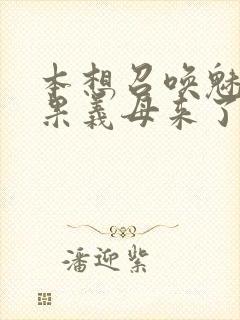 本想召唤魅
果义母来了
潘迎紫